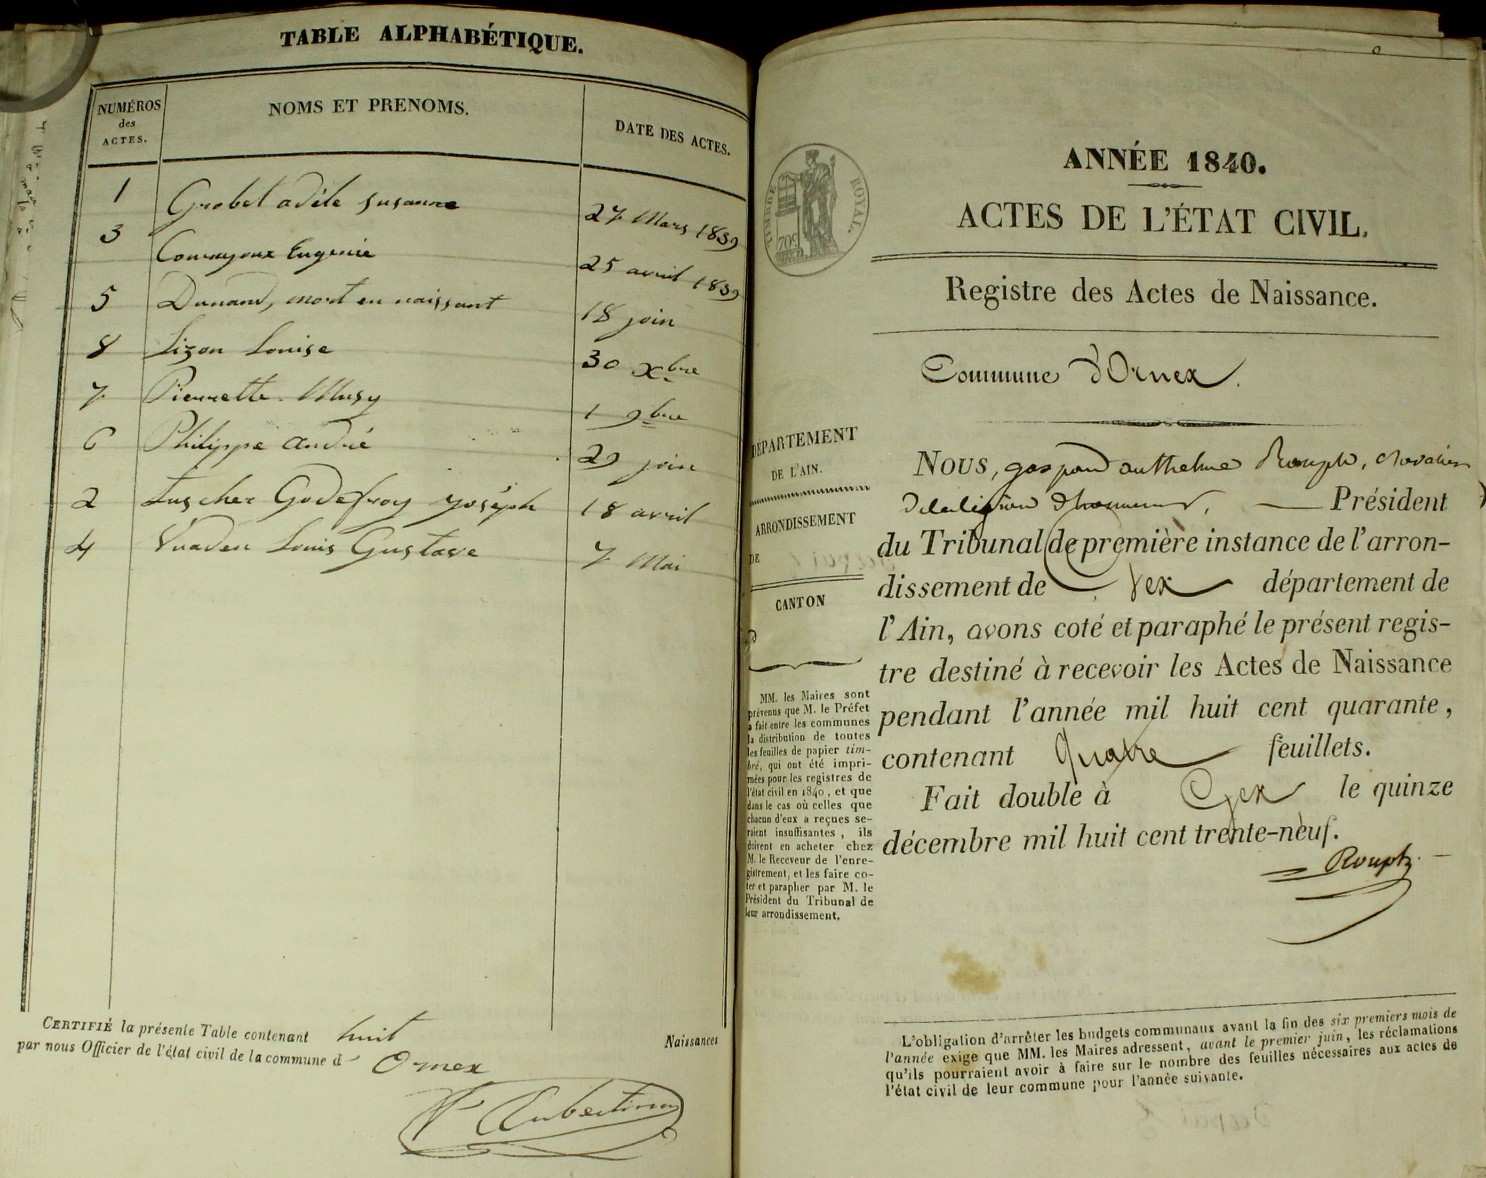 TABLE ALPHABÉTIQUE.
NUMÉROS des ACTES.
NOMS ET PRENOMS.
DATE DES ACTES.
1 Grobet adèle Susanne 27 Mars 1839
3 Eugenie 25 avril 1839
5 Dunand, mort en naissant 18 join
8 Lizon Louise 30 Xbre
7 Pierrette Musy 1 9bre
6 Philippe andré 29 join
2 Tuscher Godefroy Joséph 18 avril
4 Vuaden Louis Gustave 7 Mai
CERTIFIÉ la présente Table contenant huit Naissances
par nous Officier de l'état civil de la commune d' Ornex
Aubertin
TIMBRE ROYAL.
70c
ANNÉE 1840.
ACTES DE L'ÉTAT CIVIL.
Registre des Actes de Naissance.
Commune d'Ornex.
DÉPARTEMENT
DE L'AIN.
ARRONDISSEMENT
DE
CANTON
D
MM. les Maires sont
prévenus que M. le Préfet
a fait entre les communes
la distribution de toutes
les feuilles de papier tim-
bré, qui ont été impri-
mées pour les registres de
l'état civil en 1840, et que
dans le cas où celles que
chacun d'eux a reçues se-
raient insuffisantes, ils
doivent en acheter chez
M. le Receveur de l'enre-
gistrement, et les faire co-
ter et parapher par M. le
Président du Tribunal de
leur arrondissement.
NOUS, gaspard anthelme Rouph, chevalier
de la légion d'honneur, Président
du Tribunal de première instance de l'arron-
dissement de Gex département de
l'Ain, avons coté et paraphé le présent regis-
tre destiné à recevoir les Actes de Naissance
pendant l'année mil huit cent quarante,
contenant quatre feuillets.
Fait double à Gex le quinze
décembre mil huit cent trente-neuf.
Rouph
L'obligation d'arrêter les budgets communaux avant la fin des six premiers mois de
l'année exige que MM. les Maires adressent, avant le premier juin, les réclamations
qu'ils pourraient avoir à faire sur le nombre des feuilles nécessaires aux actes de
l'état civil de leur commune pour l'année suivante.